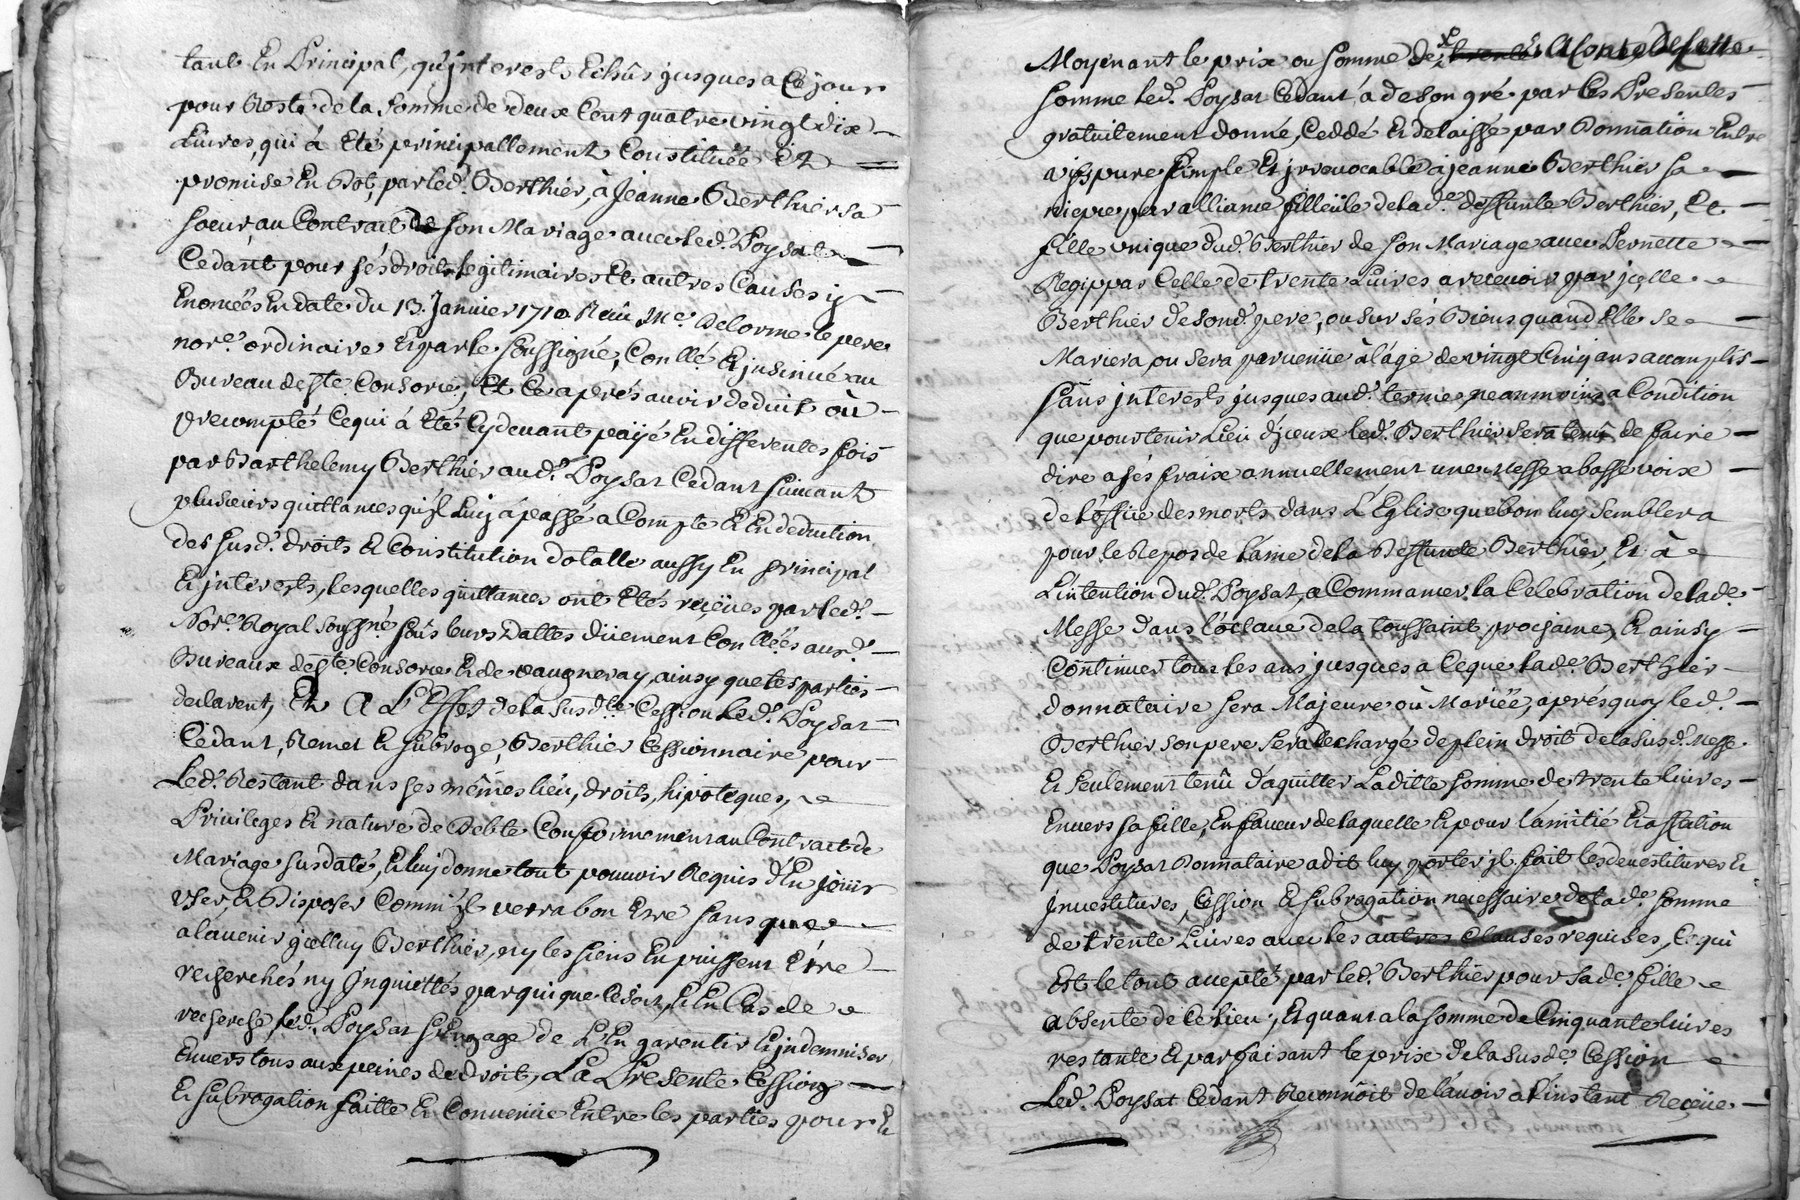 tant En Principal, qu'jnterests Echûs jusques a Ce jour
pour Reste de la Somme de deux Cent quatre vingt dix
Livres, qui à Eté principallement Constituée Et
promise En Dot, par led. Berthier, à Jeanne Berthier sa
soeur, au Contrait de son Mariage avec led. Poysat
Cedant pour sés droits legitimaires Et autres Causes y
Enoncées En date du 13. Janvier 1710 Reçû Me. Delorme le pere
nore. ordinaire Er par le soussigné, Conllé. Er jnsinué au
Bureau de Ste. Consorce, Et Ce aprés avoir deduit où
precompté Ce qui à Eté Cy devant païyé En differentes fois
par Barthelemy Berthier aud. Poysat Cedant suivant
plusieurs quittances qu'jl Luy à passé a Compte Er En deduction
des susd. droits Er Constitution dotalle aussy En principal
Er jnterests, lesquelles quittances ont Etés reçües par led.
Nore. Royal soussné. sous leurs dattes düement Conllées aux d.
Bureaux de Ste. Consorce Er de vaugneray, ainsy que les parties
declarent, Et A L'Effet de la susd. Cession led. Poysat
Cedant, Remet Er subroge, Berthier Cessionnaire pour
Led. Restant dans ses mêmes lieu, droits, hipoteques,
Privileges Er nature de Debte Conformement au Contrait de
Mariage susdaté, Er luy donne tout pouvoir Requis d'En joüir
User, Er Disposer Comm' jl verra bon Etre sans que
à l'avenir jcelluy Berthier, ny les siens En puissent Etre
recherchés ny Jnquiettés par qui que Ce soit, Er En Cas de
recherche, led. Poysat s'Engage de L'En garentir Er jndemniser
Envers tous aux peines de droit, La Presente Cession
Er subrogation faitte Er Convenüe Entre les parties pour Er
Moyenant le prix ou somme de
somme led. Poysat Cedant, à de son gré par Ces Presentes
gratuitement donné, Ceddé Er delaissé par Donnation Entre
vifs pure simple Er jrrevocable à jeanne Berthier sa
niepce par alliance filleüile de lad. deffunte Berthier, Et
fille unique dud. Berthier de son Mariage avec Pernette
Regippas Celle de trente Livres a recevoir par jcelle
Berthier de sond. pere, ou sur sés Biens quand Elle se
Mariera ou sera parvenüe à l'age de vingt Cinq ans accomplis
sans jnterests jusques aud. terme, neanmoins a Condition
que pour tenir Lieu d'jceux led. Berthier sera tenû de faire
dire a sés fraix annuellement une Messe a basse voix
de l'office des morts dans L'Eglise que bon luy semblera
pour le Repos de l'ame de la Deffunte Berthier, Et à
L'intention dud. Poysat, a Commancer la Celebration de lad.
Messe dans l'octave de la toussaint prochaine, Er ainsy
Continuer tous les ans jusques a Ce que lad. Berthier
donnataire sera Majeure où Mariée, aprés quoy led.
Berthier son pere sera dechargé de plein droit de la susd. Messe
Er seulement tenû d'aquitter Laditte somme de trente livres
Envers sa fille, En faveur de laquelle Er pour l'amitié Er affection
que Poysat Donnataire a dit luy porter jl fait les devestitures Er
jnvestitures, Cession Er subrogation necessaires de lad. somme
de trente Livres avec les autres Clauses requises, Ce qui
Est le tout accepté par led. Berthier pour sad. fille
absente de Ce lieu; Et quant a la somme de Cinquante livres
restante Er parfaisant le prix de la susd. Cession
Led. Poysat Cedant Reconnoit de l'avoir a l'instant Reçüe